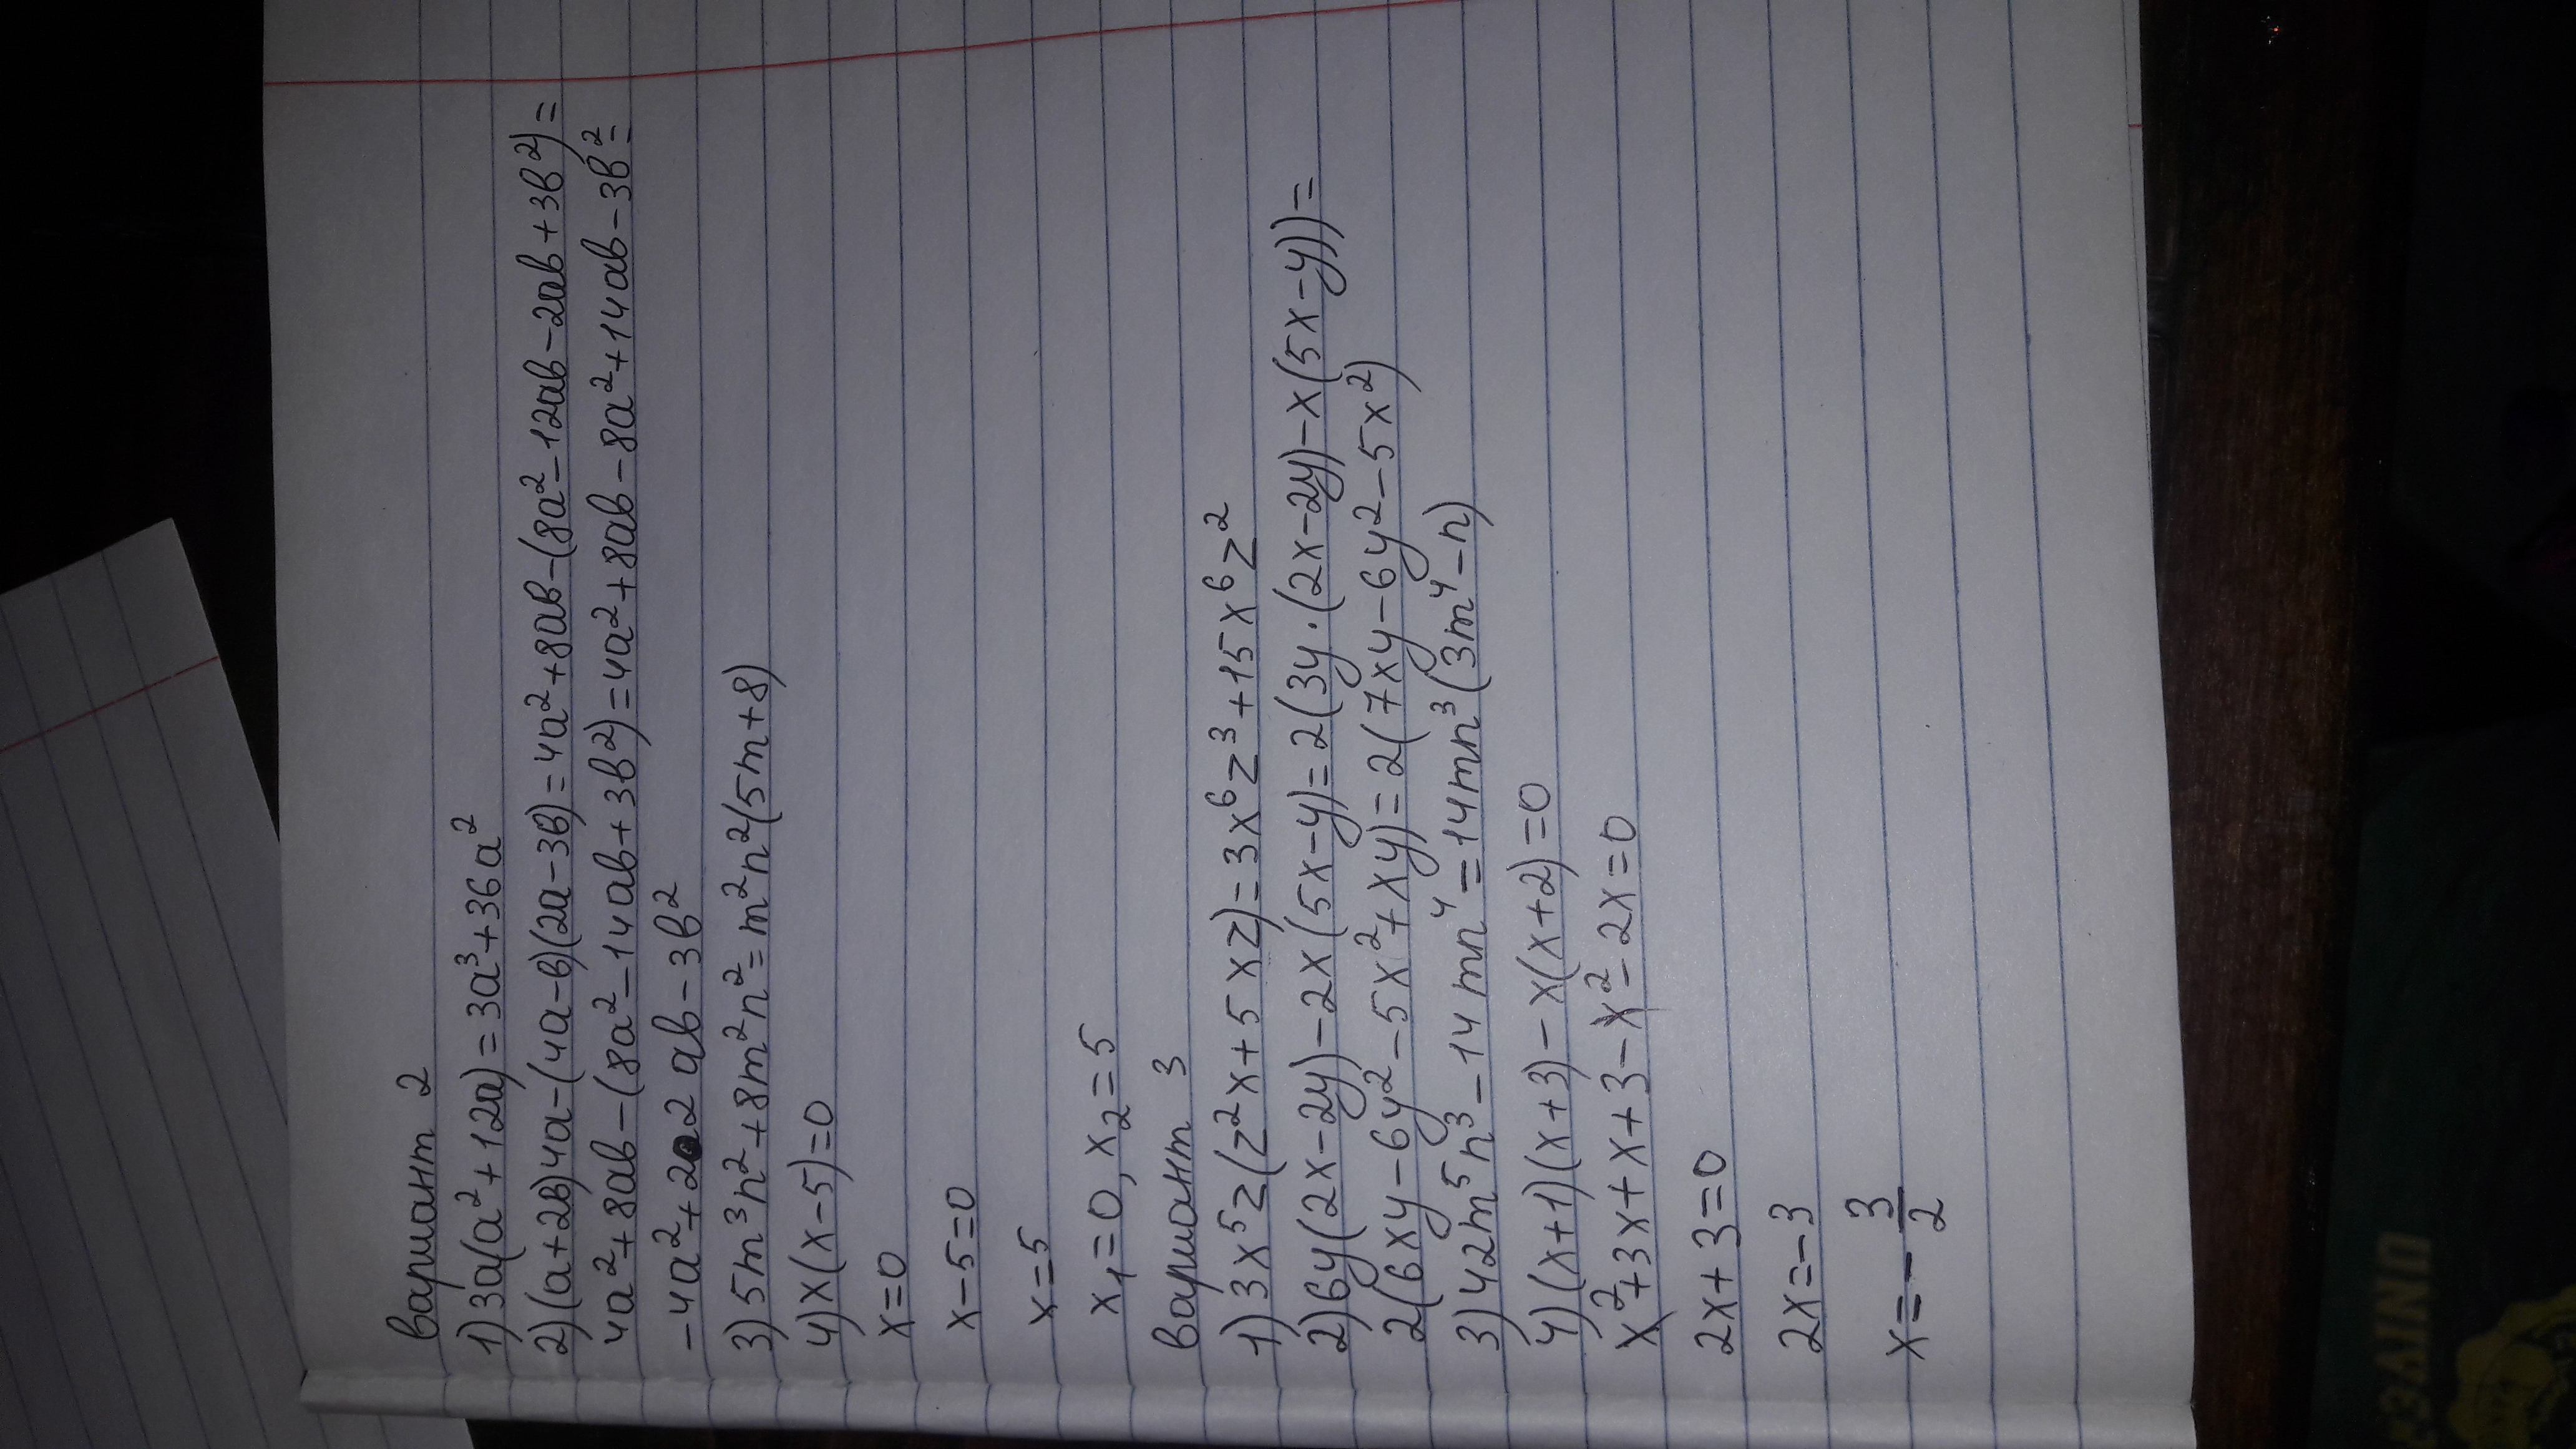 вариант 2
1) 3a(a²+12a)=3a³+36a²
2)(a+2в)4a-(4a-в)(2a-3в)=4a²+8aв-(8a²-12aв-2aв+3в2)=
4a²+8aв-(8a²-14aв+3в2)=4a²+8aв-8a²+14aв-3в²=
-4a²+22aв-3в²
3) 5m³n²+8m²n²=m²n²(5m+8)
4)x(x-5)=0
x=0
x-5=0
x=5
x₁=0, x₂=5
вариант 3
1) 3x⁵z(z²x+5xz)=3x⁶z³+15x⁶z²
2)6y(2x-2y)-2x(5x-y)=2(3y·(2x-2y)-x(5x-y))=
2(6xy-6y²-5x²+xy)=2(7xy-6y²-5x²)
3)42m⁵n³-14mn⁴=14mn³(3m⁴-n)
4)(x+1)(x+3)-x(x+2)=0
x²+3x+x+3-x²-2x=0
2x+3=0
2x=-3
x=-3/2
UNIVE